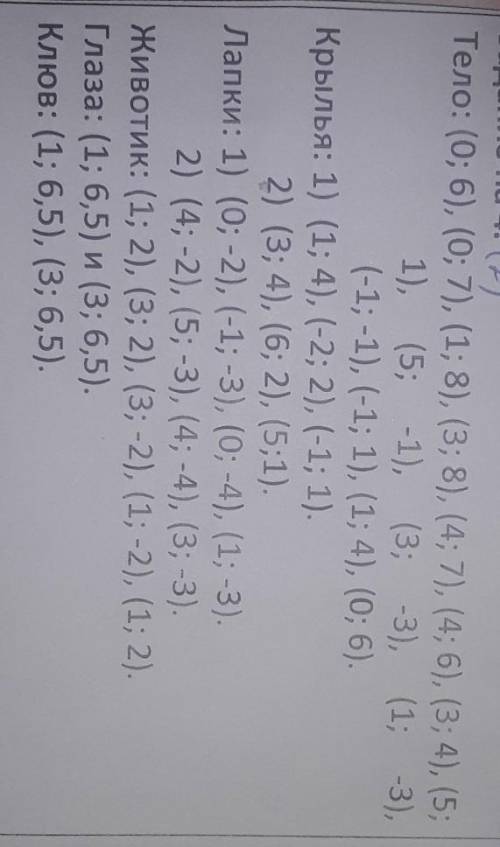 Тело: (0; 6), (0; 7), (1; 8), (3; 8), (4; 7), (4; 6), (3; 4), (5;
1), (5; -1), (3; -3), (1; -3),
(-1; -1), (-1; 1), (1; 4), (0; 6).
Крылья: 1) (1; 4), (-2; 2), (-1; 1).
2) (3; 4), (6; 2), (5;1).
Лапки: 1) (0; -2), (-1; -3), (0; -4), (1; -3).
2) (4; -2), (5; -3), (4; -4), (3; -3).
Животик: (1; 2), (3; 2), (3; -2), (1; -2), (1; 2).
Глаза: (1; 6,5) и (3; 6,5).
Клюв: (1; 6,5), (3; 6,5).